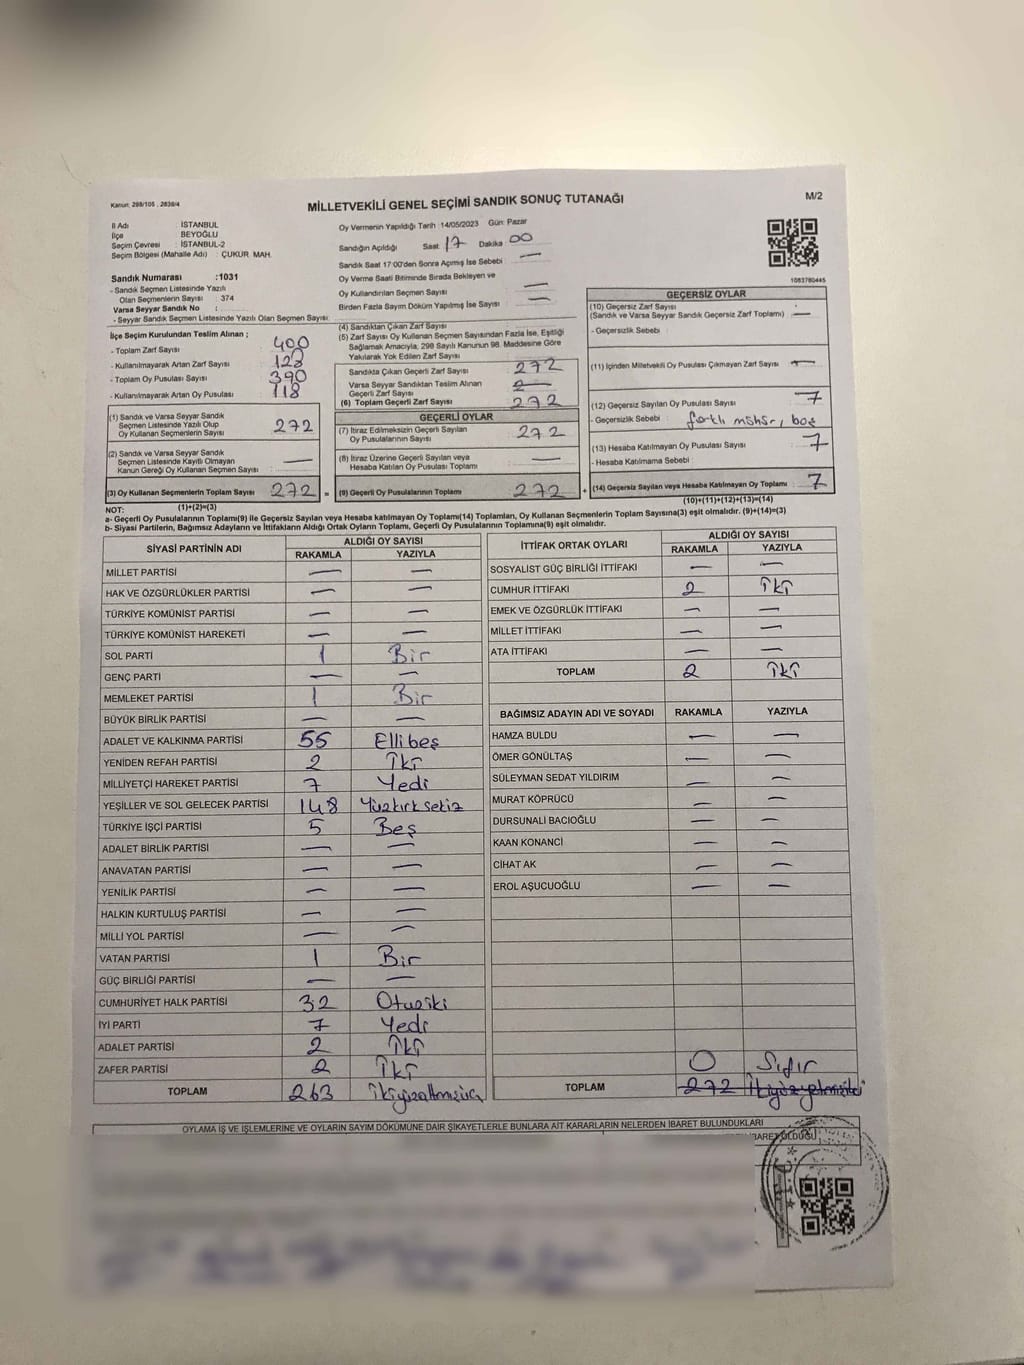 Kanun: 298/105 , 2839/4
MİLLETVEKİLİ GENEL SEÇİMİ SANDIK SONUÇ TUTANAĞI
M/2
İl Adı : İSTANBUL
İlçe : BEYOĞLU
Seçim Çevresi : İSTANBUL-2
Seçim Bölgesi (Mahalle Adı) : ÇUKUR MAH.
Sandık Numarası :1031
- Sandık Seçmen Listesinde Yazılı
Olan Seçmenlerin Sayısı : 374
Varsa Seyyar Sandık No :
- Seyyar Sandık Seçmen Listesinde Yazılı Olan Seçmen Sayısı:
Oy Vermenin Yapıldığı Tarih :14/05/2023 Gün: Pazar
Sandığın Açıldığı Saat: 17 Dakika 00
Sandık Saat 17:00'den Sonra Açımış İse Sebebi : —
Oy Verme Saati Bitiminde Sırada Bekleyen ve
Oy Kullandırılan Seçmen Sayısı —
Birden Fazla Sayım Döküm Yapılmış İse Sayısı : —
1083780445
İlçe Seçim Kurulundan Teslim Alınan ;
- Toplam Zarf Sayısı : 400
- Kullanılmayarak Artan Zarf Sayısı : 128
- Toplam Oy Pusulası Sayısı : 390
- Kullanılmayarak Artan Oy Pusulası : 118
(1) Sandık ve Varsa Seyyar Sandık
Seçmen Listesinde Yazılı Olup
Oy Kullanan Seçmenlerin Sayısı : 272
(2) Sandık ve Varsa Seyyar Sandık
Seçmen Listesinde Kayıtlı Olmayan
Kanun Gereği Oy Kullanan Seçmen Sayısı : —
(3) Oy Kullanan Seçmenlerin Toplam Sayısı : 272 =
(1)+(2)=(3)
(4) Sandıktan Çıkan Zarf Sayısı
(5) Zarf Sayısı Oy Kullanan Seçmen Sayısından Fazla İse, Eşitliği
Sağlamak Amacıyla, 298 Sayılı Kanunun 98. Maddesine Göre
Yakılarak Yok Edilen Zarf Sayısı :
Sandıkta Çıkan Geçerli Zarf Sayısı : 272
Varsa Seyyar Sandıktan Teslim Alınan
Geçerli Zarf Sayısı
(6) Toplam Geçerli Zarf Sayısı : 272
GEÇERLİ OYLAR
(7) İtiraz Edilmeksizin Geçerli Sayılan
Oy Pusulalarının Sayısı : 272
(8) İtiraz Üzerine Geçerli Sayılan veya
Hesaba Katılan Oy Pusulası Toplamı : —
(9) Geçerli Oy Pusulalarının Toplamı : 272 +
GEÇERSİZ OYLAR
(10) Geçersiz Zarf Sayısı
(Sandık ve Varsa Seyyar Sandık Geçersiz Zarf Toplamı) : —
- Geçersizlik Sebebi :
(11) İçinden Milletvekili Oy Pusulası Çıkmayan Zarf Sayısı : —
(12) Geçersiz Sayılan Oy Pusulası Sayısı : 7
- Geçersizlik Sebebi : farklı mühür, boş
(13) Hesaba Katılmayan Oy Pusulası Sayısı : 7
- Hesaba Katılmama Sebebi :
(14) Geçersiz Sayılan veya Hesaba Katılmayan Oy Toplamı : 7
(10)+(11)+(12)+(13)=(14)
NOT:
a- Geçerli Oy Pusulalarının Toplamı(9) ile Geçersiz Sayılan veya Hesaba Katılmayan Oy Toplamı(14) Toplamları, Oy Kullanan Seçmenlerin Toplam Sayısına(3) eşit olmalıdır. (9)+(14)=(3)
b- Siyasi Partilerin, Bağımsız Adayların ve İttifakların Aldığı Ortak Oyların Toplamı, Geçerli Oy Pusulalarının Toplamına(9) eşit olmalıdır.
SİYASİ PARTİNİN ADI ALDIĞI OY SAYISI
RAKAMLA YAZIYLA
MİLLET PARTİSİ — —
HAK VE ÖZGÜRLÜKLER PARTİSİ — —
TÜRKİYE KOMÜNİST PARTİSİ — —
TÜRKİYE KOMÜNİST HAREKETİ — —
SOL PARTİ 1 Bir
GENÇ PARTİ — —
MEMLEKET PARTİSİ 1 Bir
BÜYÜK BİRLİK PARTİSİ — —
ADALET VE KALKINMA PARTİSİ 55 Ellibeş
YENİDEN REFAH PARTİSİ 2 İki
MİLLİYETÇİ HAREKET PARTİSİ 7 Yedi
YEŞİLLER VE SOL GELECEK PARTİSİ 148 Yüzkırksekiz
TÜRKİYE İŞÇİ PARTİSİ 5 Beş
ADALET BİRLİK PARTİSİ — —
ANAVATAN PARTİSİ — —
YENİLİK PARTİSİ — —
HALKIN KURTULUŞ PARTİSİ — —
MİLLİ YOL PARTİSİ — —
VATAN PARTİSİ 1 Bir
GÜÇ BİRLİĞİ PARTİSİ — —
CUMHURİYET HALK PARTİSİ 32 Otuziki
İYİ PARTİ 7 Yedi
ADALET PARTİSİ 2 İki
ZAFER PARTİSİ 2 İki
TOPLAM 263 ikiyüzaltmışüç
İTTİFAK ORTAK OYLARI ALDIĞI OY SAYISI
RAKAMLA YAZIYLA
SOSYALİST GÜÇ BİRLİĞİ İTTİFAKI — —
CUMHUR İTTİFAKI 2 İki
EMEK VE ÖZGÜRLÜK İTTİFAKI — —
MİLLET İTTİFAKI — —
ATA İTTİFAKI — —
TOPLAM 2 İki
BAĞIMSIZ ADAYIN ADI VE SOYADI RAKAMLA YAZIYLA
HAMZA BULDU — —
ÖMER GÖNÜLTAŞ — —
SÜLEYMAN SEDAT YILDIRIM — —
MURAT KÖPRÜCÜ — —
DURSUNALİ BACIOĞLU — —
KAAN KONANCİ — —
CİHAT AK — —
EROL AŞUCUOĞLU — —
0 Sıfır
TOPLAM 272 İkiyüzyetmişiki
OYLAMA İŞ VE İŞLEMLERİNE VE OYLARIN SAYIM DÖKÜMÜNE DAİR ŞİKAYETLERLE BUNLARA AİT KARARLARIN NELERDEN İBARET BULUNDUKLARI